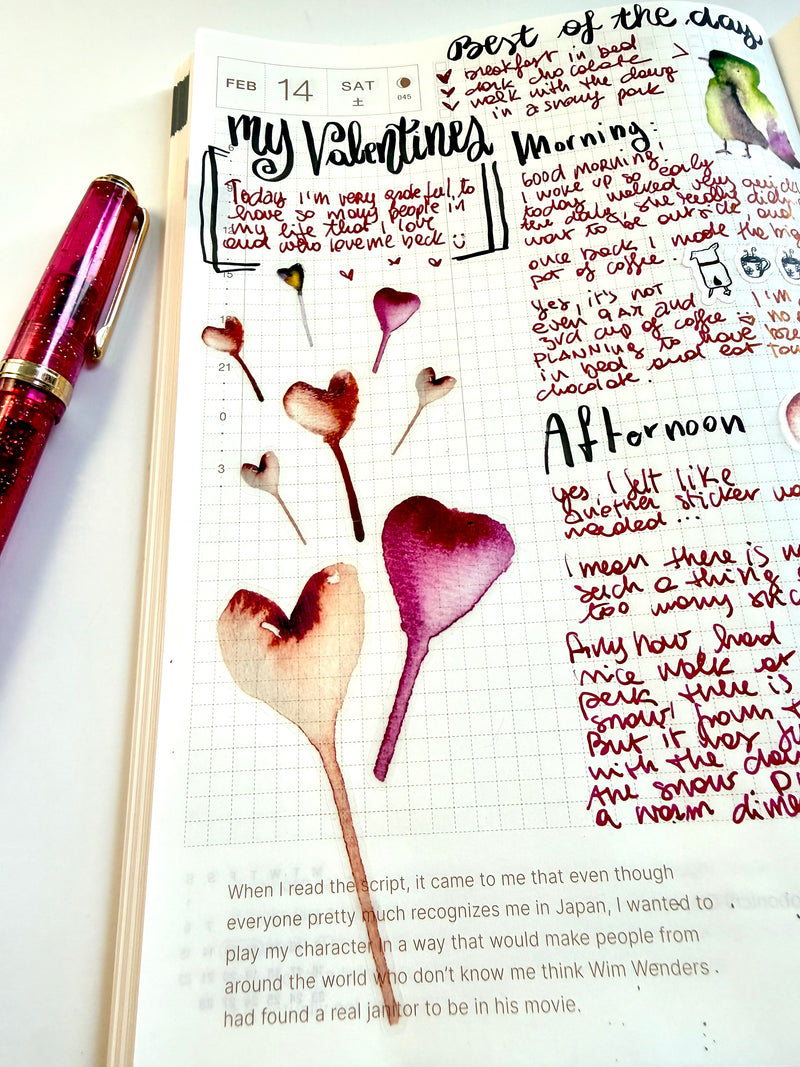 FEB 14 SAT
土
045
Best of the day
breakfast in bed
dark chocolate
walk with the dawg
in a snowy park
my Valentines
Today I'm very grateful to
have so many people in
my life that I love
and who love me back
15
21
0
3
Morning:
Good morning,
I woke up so early
today, walked very
the dawg, she really
want to be outside, and
once back I made the big
pot of coffee.
Yes, it's not
even 9 AM and
3rd cup of coffee
PLANNING to have
in bed and eat
chocolate.
I'm
no
Afternoon
yes, I felt like
another sticker
needed...
I mean there is
such a thing
too many
Anyhow had
nice walk at
park there is
snow from
But it was
with the
the snow.
a warm
When I read the script, it came to me that even though
everyone pretty much recognizes me in Japan, I wanted to
play my character in a way that would make people from
around the world who don't know me think Wim Wenders
had found a real janitor to be in his movie.